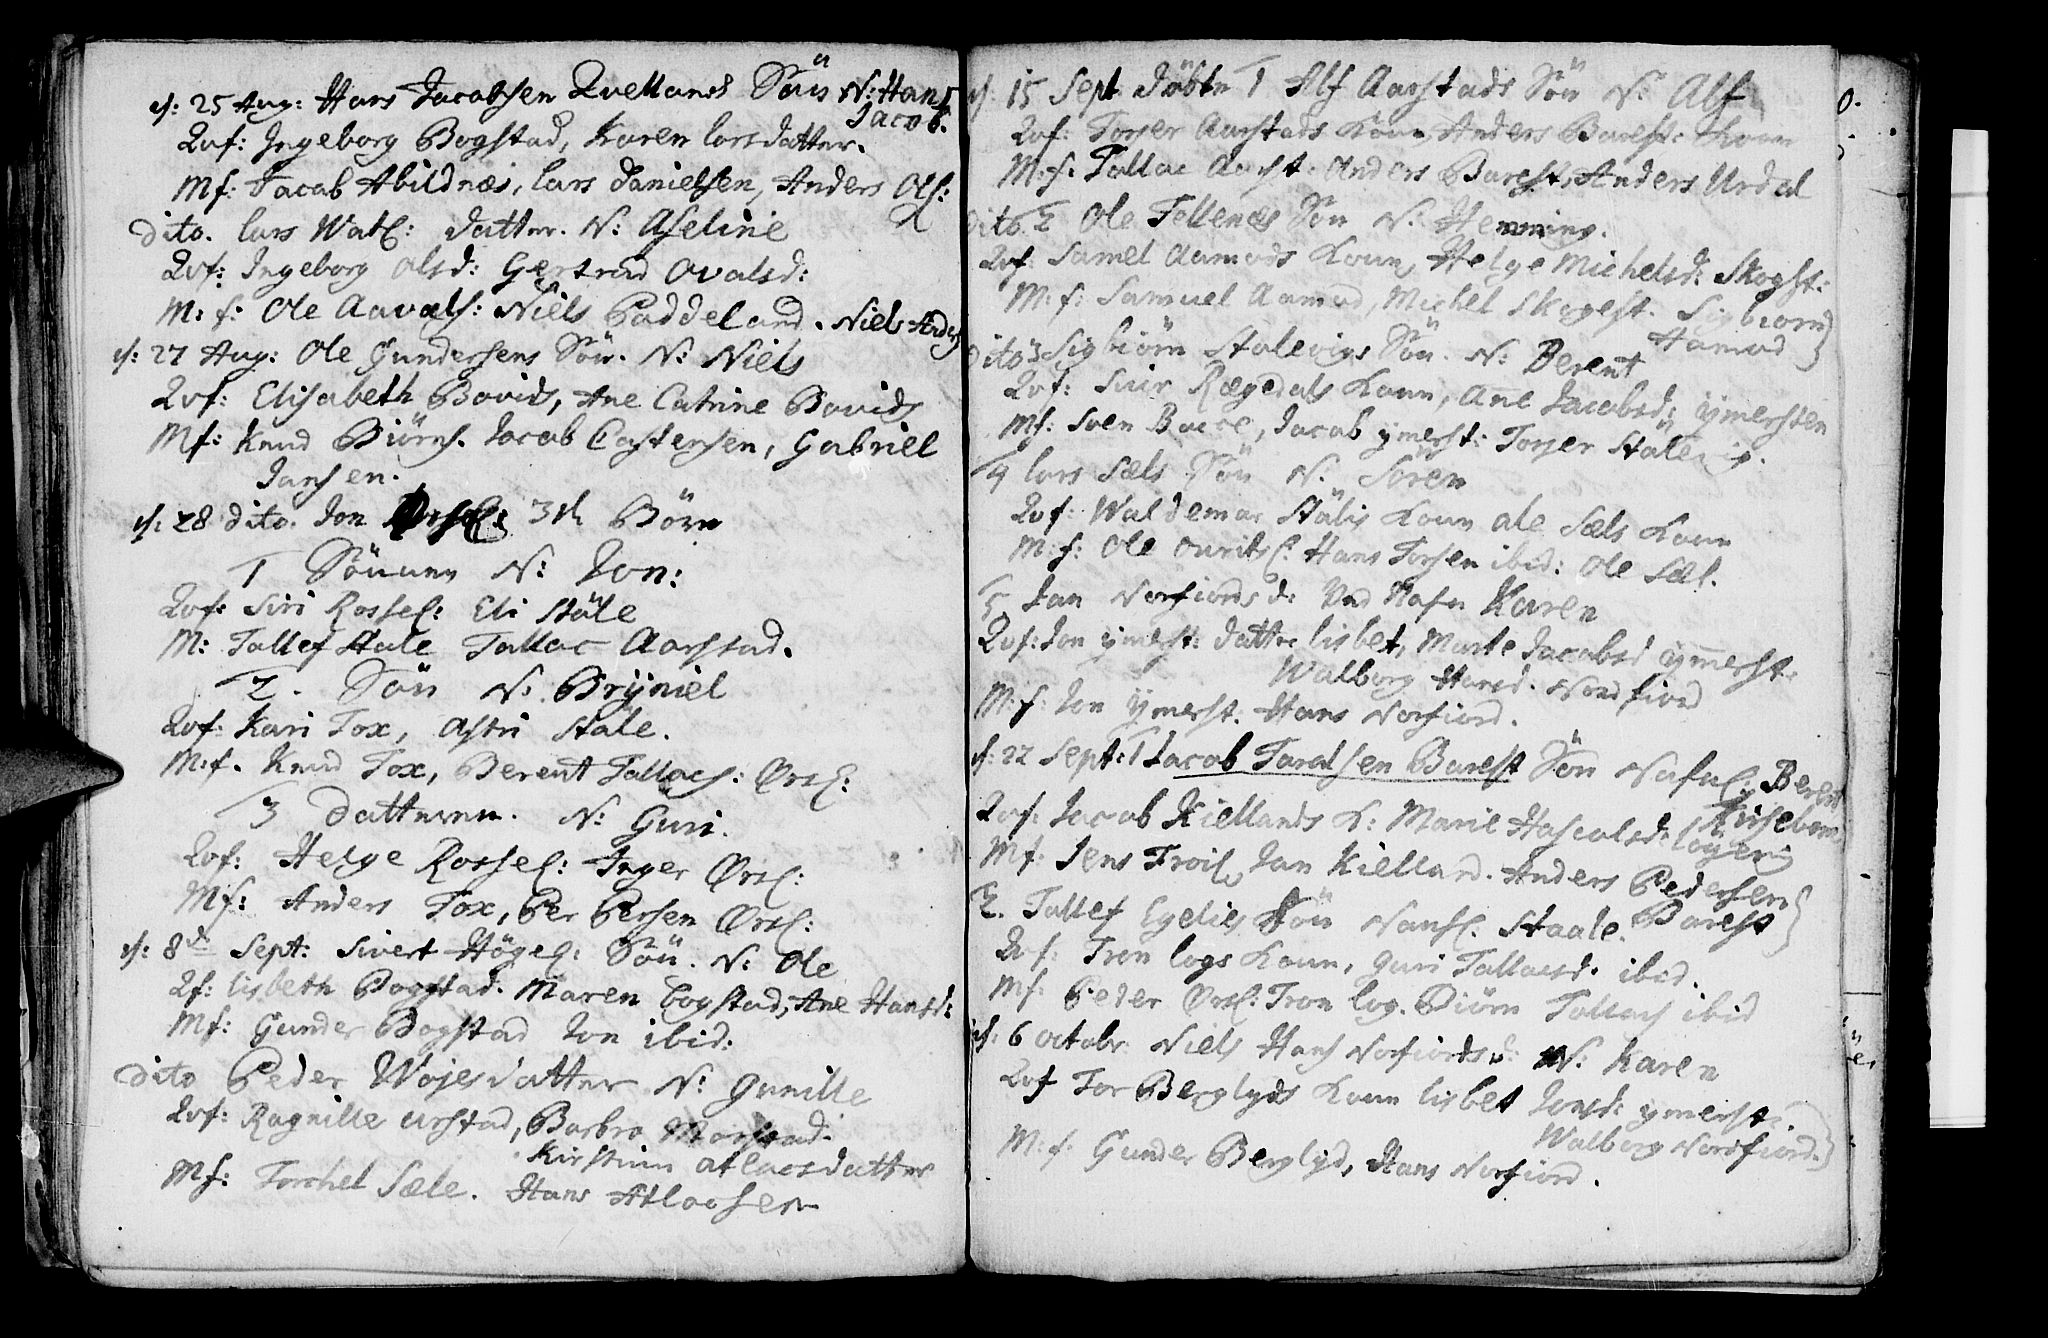 d: 25 Aug: Hans Jacobsen Qvellands Sön N: Hans
Jacob.
Qvf: Ingeborg Bogstad, Karen larsdatter.
Mf: Jacob Abildnæs, lars Danielsen, Anders Ols:
dito. lars Watl: datter. N: Aseline
Qvf: Ingeborg olsd: Gertrud Ovalsd:
M: f: Ole Aavals: Niels Paddeland. Niels Anders
d: 27 Aug: Ole Gundersens Sön. N: Niels
Qvf: Elisabeth Bovids, Ane Catrine Bovids
Mf: Knud Biörns. Jacob Castensen, Gabriel
Jansen.
d: 28 dito. Jon 3de Börn
1 Sönnen N: Jon:
Qvf: Siri Rossel: Eli Ståle
M: Tallef Stale Tallac Aarstad.
2. Sön N: Brÿniel
Qvf: Kari Tox, Astri Stale.
M:f. Knud Tox, Berent Tallacs: Ørsl:
3 datteren. N: Guri.
Qvf: Helge Rossel: Inger Ørsl:
Mf: Anders Tox, Per Persen Ørsl:
d: 8de Sept: Sivert Högel: Sön. N: Ole
Qf: lisbeth Bogstad. Maren bogstad, Ane Hansd:
Mf: Gunder Bogstad Jon ibid:
dito Peder Wojes datter N: Gunille
Qvf: Ragnille urstad, Barbro
Kirstinn atlacsdatter
Mf: Torchel Sæle. Hans Atlacsen
d: 15 Sept Döbte 1 Alf Aarstads Sön N: Alf
Qvf: Torjer Aarstads Koun, Anders Barest: Koun
M:f: Tallac Aarst: Anders Barest, Anders Urdal
dito. 2 Ole Fellenæs Sön N: Hemming.
Qvf: Samel Aamods Koun, Helge Michelsd: Skogst:
M:f: Samuel Aamod, Michel Skogest. Sigbiorn
Hamad
dito 3 Sigbiörn Stalevigs Sön. N: Berent
Qvf: Siur Rægedals Koun, Ane Jacobsd: ÿmersten
Mf: Sven Bacce, Jacob ÿmerst: Torjer Stålevig.
4 lars Sæls Sön N: Sören
Qvf: Waldemar Stålis Koun ole Sæls Koun
M:f: Ole ouritsl: Hans Torsen ibid: Ole Sæl.
5 Jan Norfiords d: Ved Nafn Karen
Qvf: Jon ÿmerst: datter lisbet, Marte Jacobsd ÿmerst.
Walborg Hansd. Nordfiord
M:f: Jon ÿmerst. Hans Norfiord.
d: 22 Sept: 1 Jacob Taralsen Barest Sön Nafnl: Berent
Qvf: Jacob Kiellands K: Marie Hascalsd:
Mf: Jens Troil, Jan Kielland. Anders Pedersen
Barest
2. Tallef Egelies Sön Nansl. Staale.
Qvf: Tron logs Koun, Guri Tallacsd. ibid.
Mf: Peder Ørsl: Tron log. Biörn Tallacs ibid
d: 6 octobr: Niels Hans Norfiords d: N: Karen
Qvf Tor Berglyds Koun lisbet Jonsd: ÿmerst:
Walborg Nordfiord.
M:f: Gunder Berglÿd, Hans Norfiord.